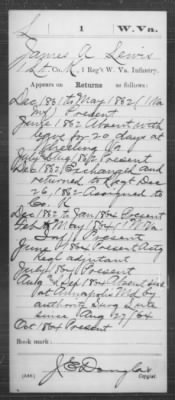 L 1 W. Va.
James A Lewis
Lt, Co. K, 1 Reg't W. Va. Infantry.
Appears on Returns as follows:
Dec 1861 to May 1862
Present
June 1862 Absent with
leave for 20 days at
Wheeling Va
July & Aug 1862 Present
Dec 1862 Exchanged and
returned to Regt Dec
26, 1862 Assigned to
Co. K
Dec 1862 to Jan 1864 Present
Feb & May 1864
Present
June 1864 Present Actg
Regl adjutant
July 1864 Present
Aug & Sep 1864 Absent sick
at Annapolis Md by
authority Surg
since Aug 27/64
Oct 1864 Present
Book mark:
J. E. Douglas
(546) Copyist.